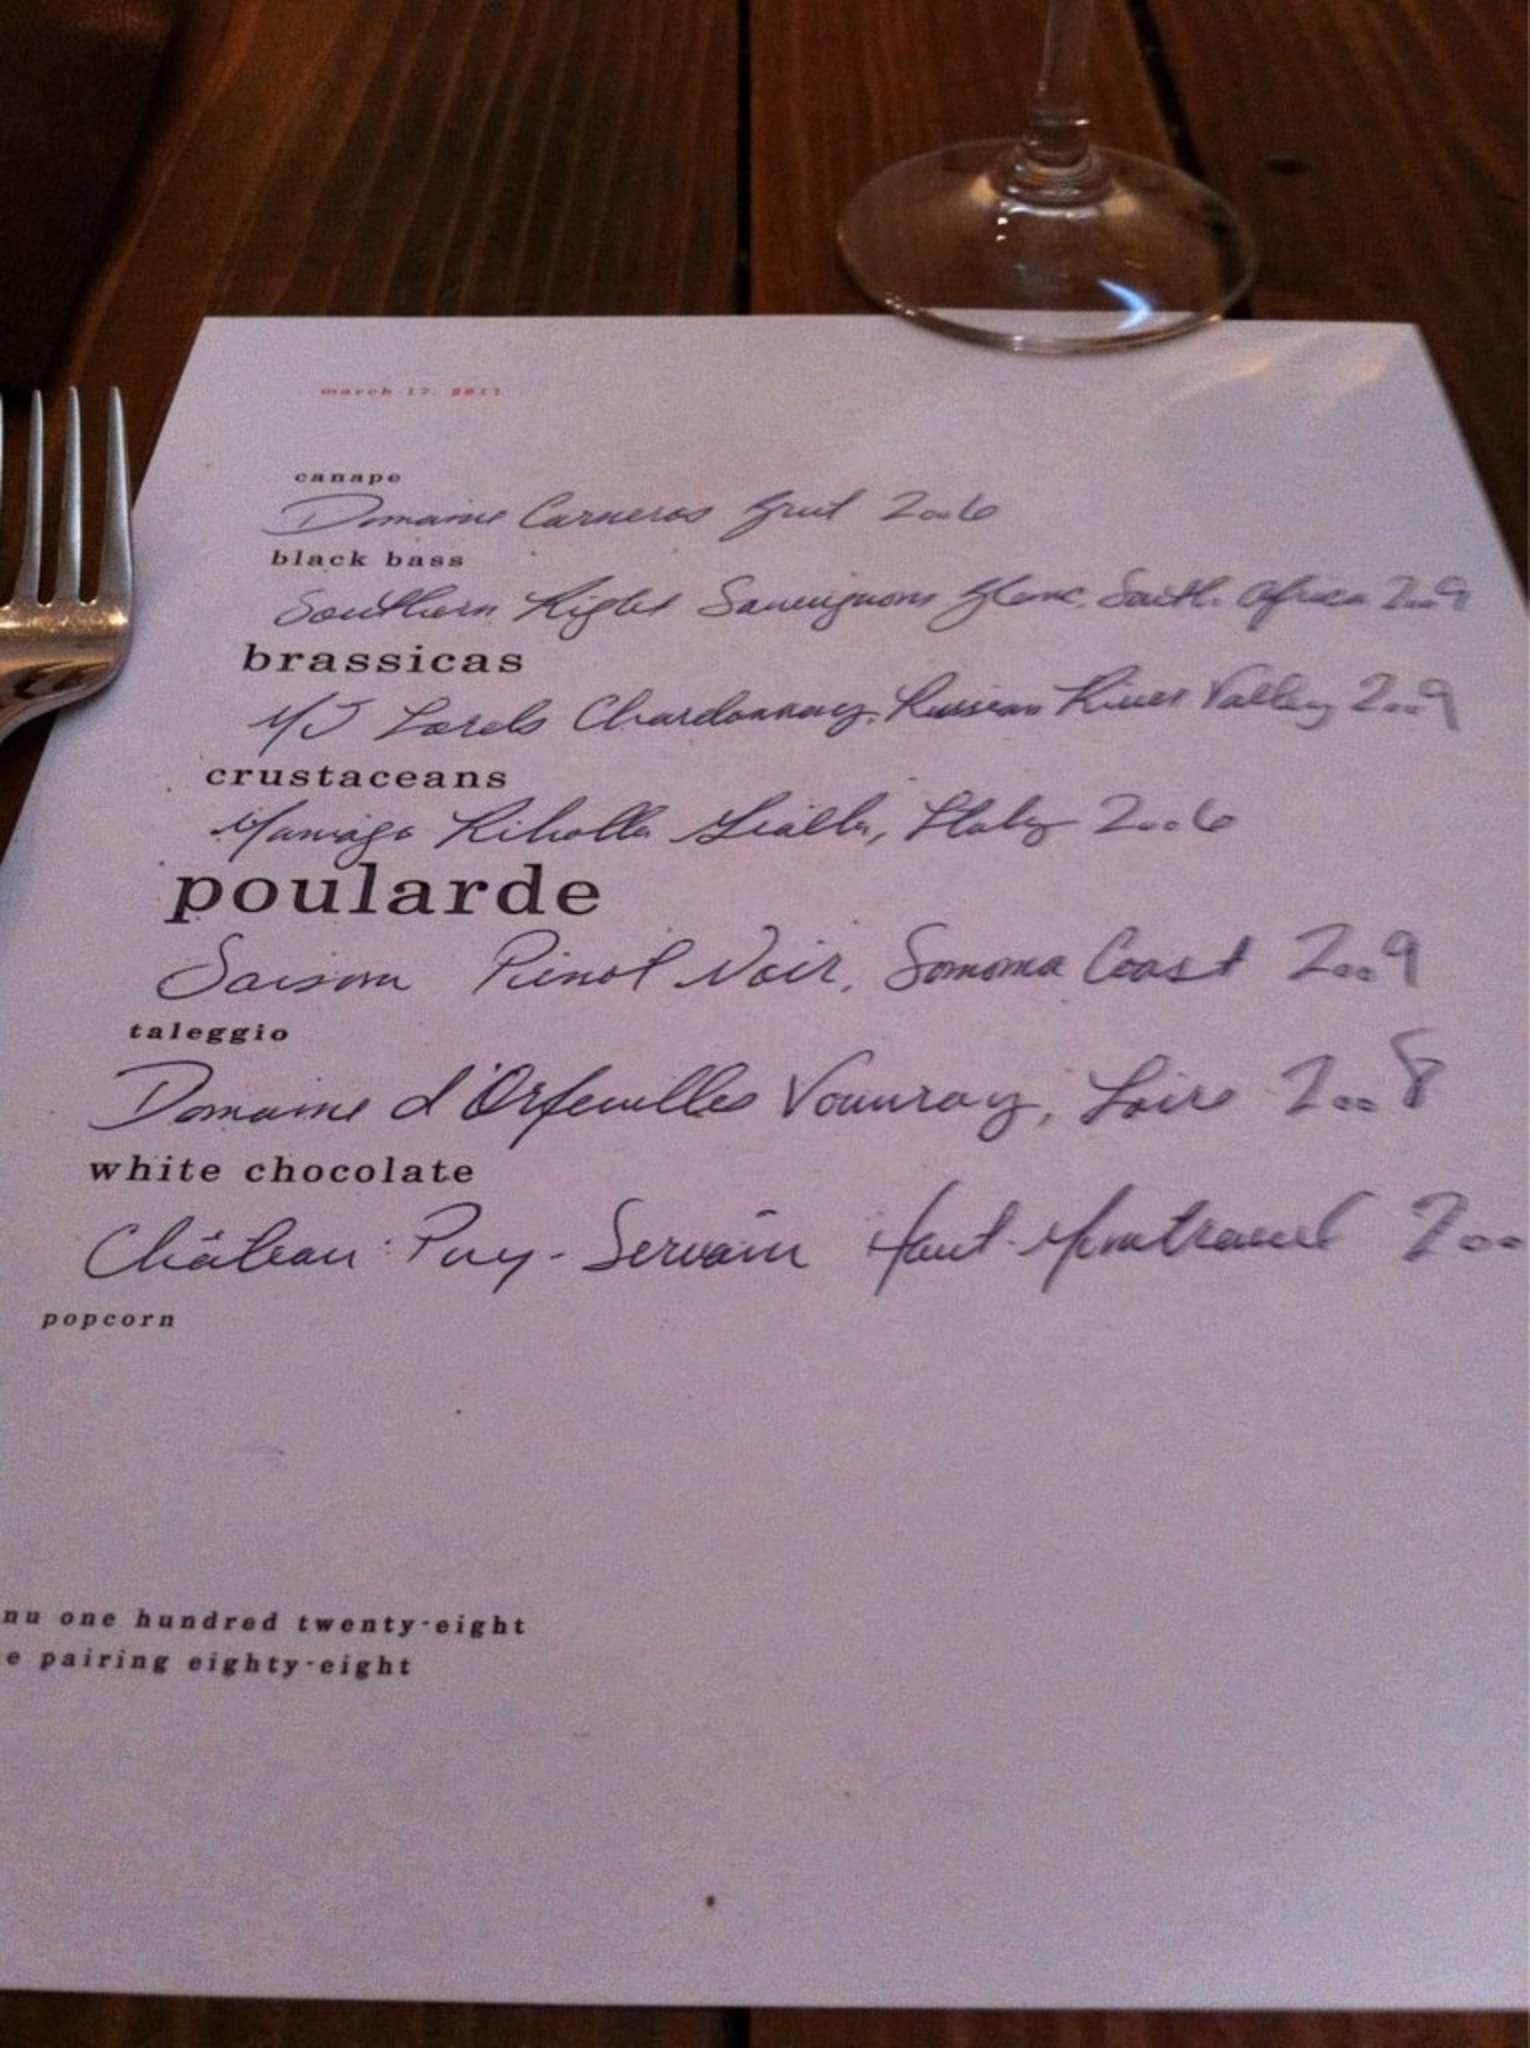 march 17, 2011
canape
Domaine Carneros Brut 2006
black bass
Southern Right Sauvignon Blanc, South Africa 2009
brassicas
Chardonnay, Russian River Valley 2009
crustaceans
Ribolla Gialla, Italy 2006
poularde
Saison Pinot Noir, Sonoma Coast 2009
taleggio
Domaine d'Orfeuilles Vouvray, Loire 2008
white chocolate
Château Puy-Servain Haut-Montravel 200
popcorn
nu one hundred twenty-eight
e pairing eighty-eight